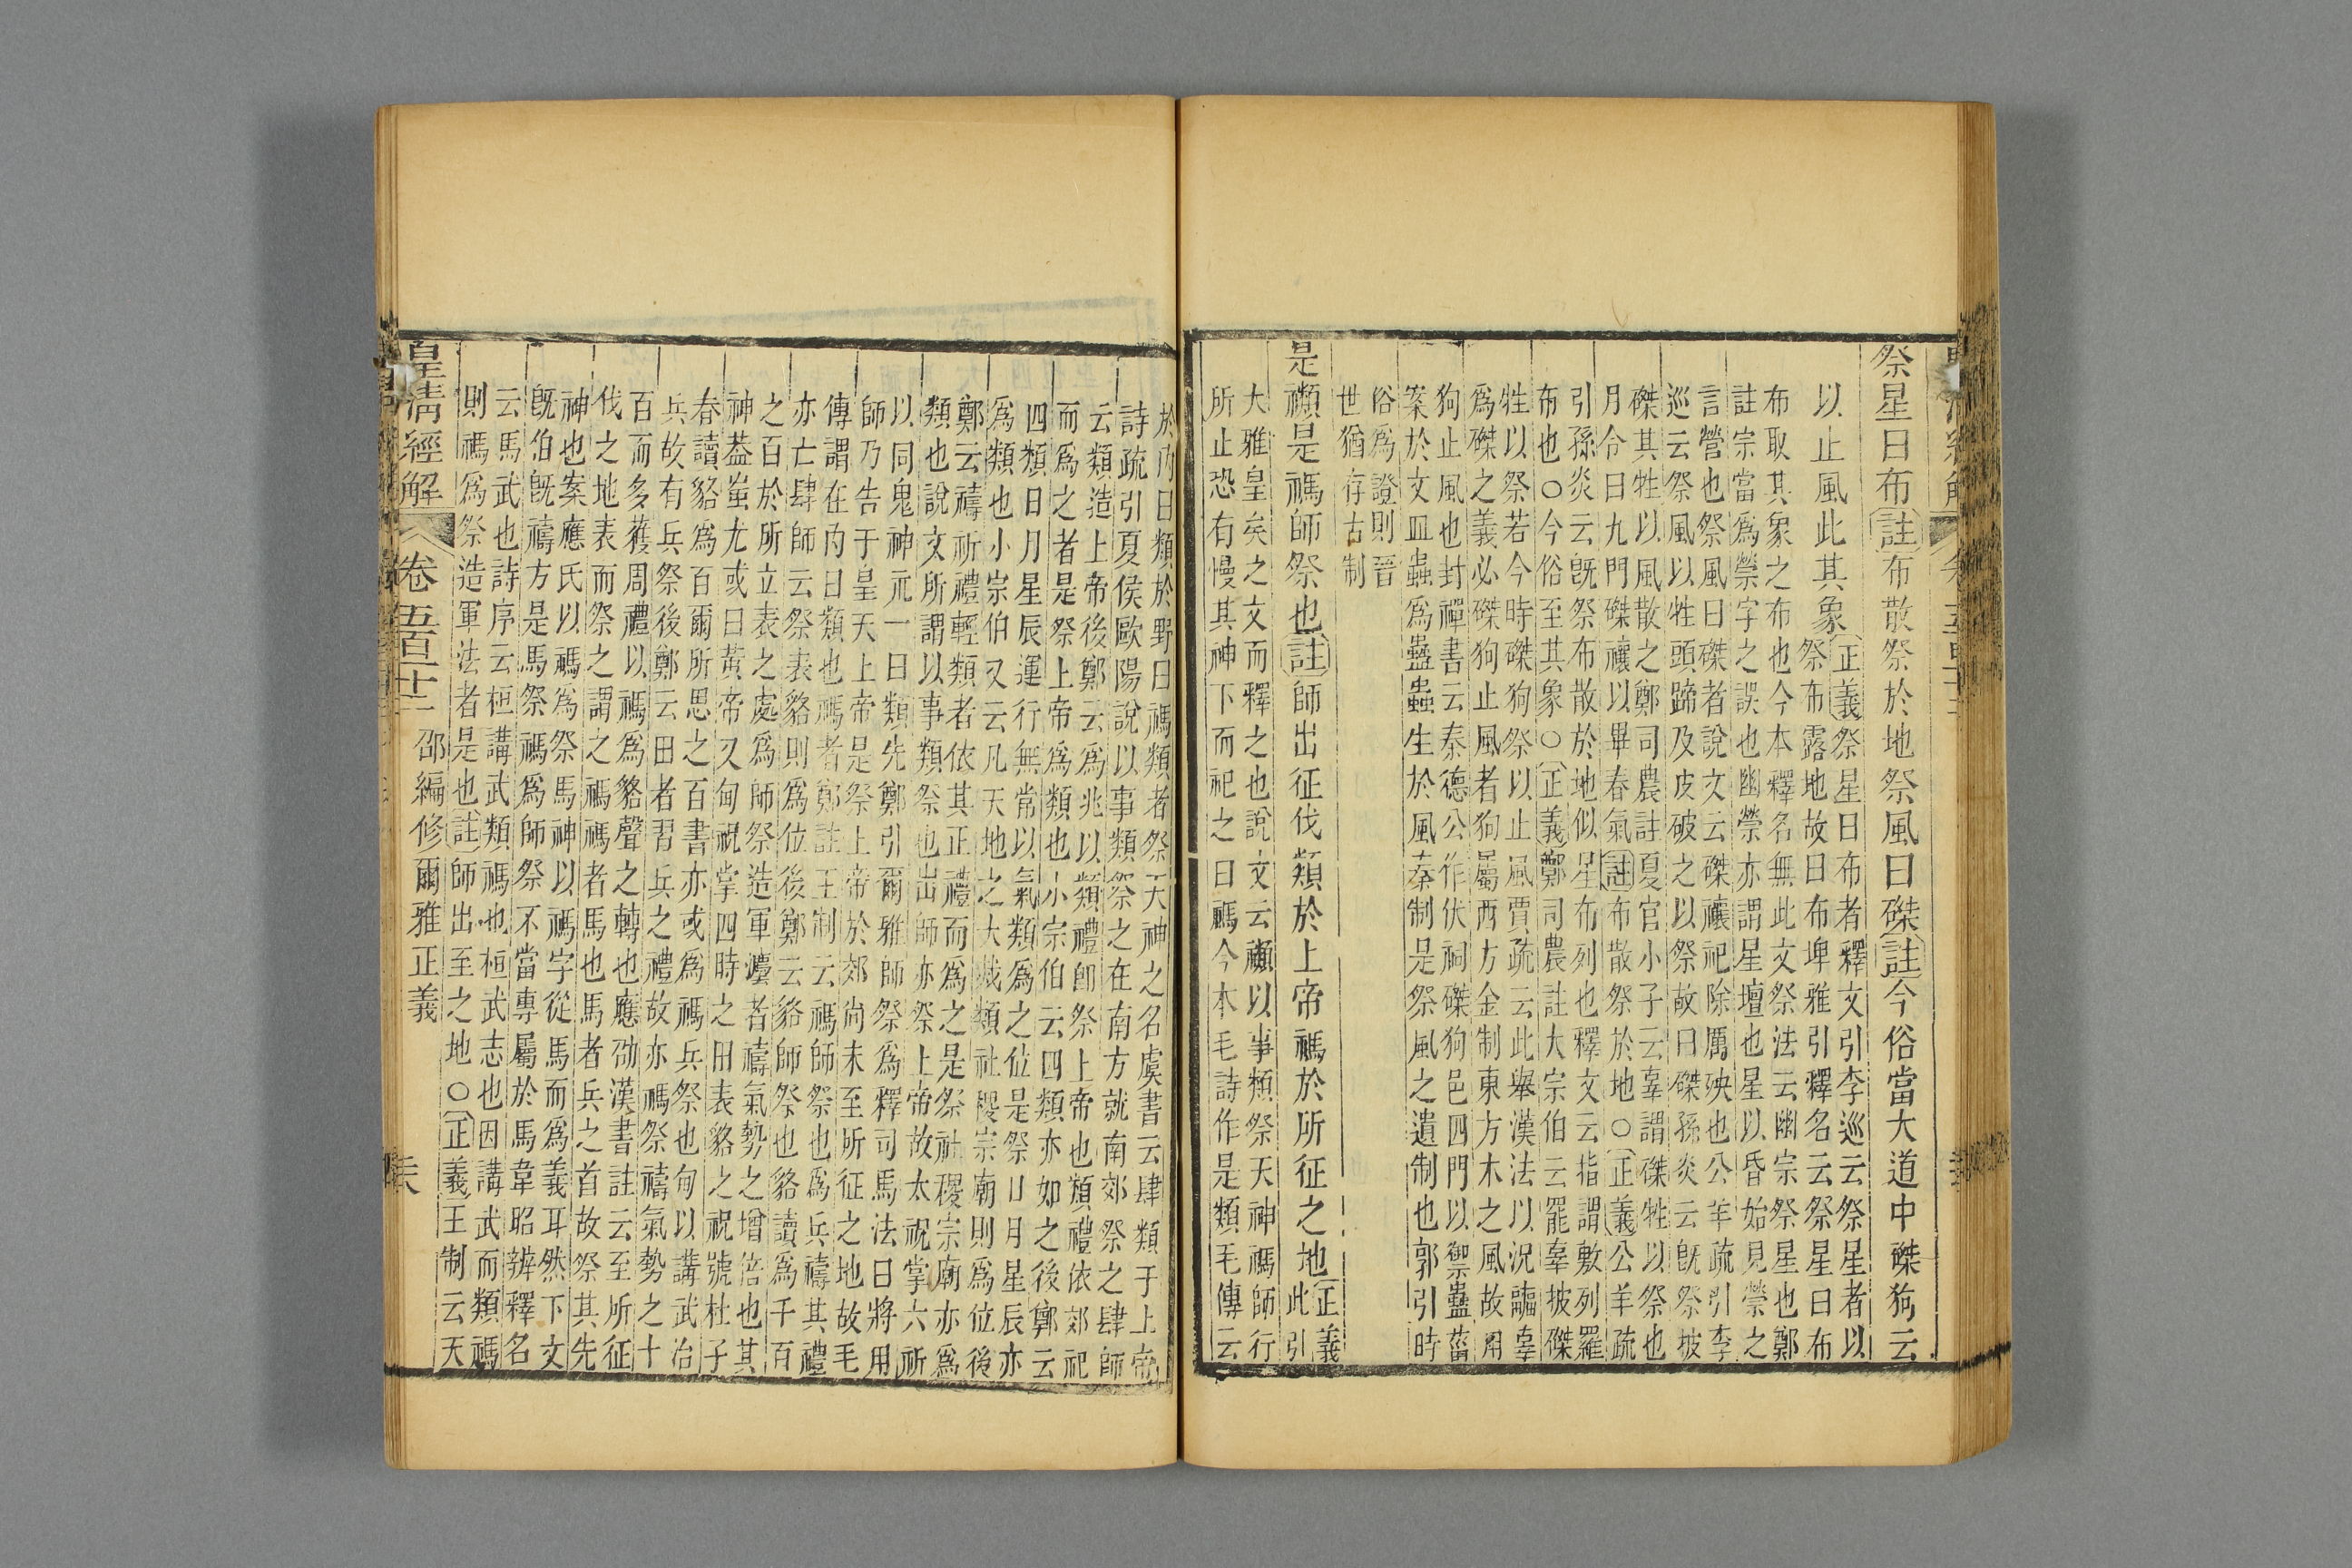 祭星曰布註布散祭於地祭風曰磔註今俗當大道中磔狗云
以止風此其象
正義祭星曰布者釋文引李巡云祭星者以
祭布露地故曰布埤雅引釋名云祭星曰布
布取其象之布也今本釋名無此文祭法云幽宗祭星也鄭
註宗當爲禜字之誤也幽禜亦謂星壇也星以昏始見禜之
言營也祭風曰磔者說文云磔禳祀除厲殃也公羊疏引李
巡云祭風以牲頭蹄及皮破之以祭故曰磔孫炎云旣祭披
磔其牲以風散之鄭司農註夏官小子云辜謂磔牲以祭也
月令曰九門磔禳以畢春氣註布散祭於地○正義公羊疏
引孫炎云旣祭布散於地似星布列也釋文云指謂敷列羅
布也○今俗至其象○正義鄭司農註大宗伯云罷辜披磔
牲以祭若今時磔狗祭以止風賈疏云此舉漢法以況疈辜
爲磔之義必磔狗止風者狗屬西方金制東方木之風故用
狗止風也封禪書云秦德公作伏祠磔狗邑四門以禦蠱菑
案於文皿蟲爲蠱蟲生於風秦制是祭風之遺制也郭引時
俗爲證則晉
世猶存古制
是禷是禡師祭也註師出征伐類於上帝禡於所征之地
正義
此引
大雅皇矣之文而釋之也說文云禷以事類祭天神禡師行
所止恐有慢其神下而祀之曰禡今本毛詩作是類毛傳云
於內曰類於野曰禡類者祭天神之名虞書云肆類于上帝
詩疏引夏侯歐陽說以事類祭之在南方就南郊祭之肆師
云類造上帝後鄭云爲兆以類禮卽祭上帝也類禮依郊祀
而爲之者是祭上帝爲類也小宗伯云四類亦如之後鄭云
四類日月星辰運行無常以氣類爲之位是祭日月星辰亦
爲類也小宗伯又云凡天地之大烖類社稷宗廟則爲位後
鄭云禱祈禮輕類者依其正禮而爲之是祭社稷宗廟亦爲
類也說文所謂以事類祭也出師亦祭上帝故太祝掌六祈
以同鬼神元一曰類先鄭引爾雅師祭爲釋司馬法曰將用
師乃告于皇天上帝是祭上帝於郊尚未至所征之地故毛
傳謂在內曰類也禡者鄭註王制云禡師祭也爲兵禱其禮
亦亡肆師云祭表貉則爲位後鄭云貉師祭也貉讀爲千百
之百於所立表之處爲師祭造軍灋者禱氣勢之增倍也其
神葢蚩尤或曰黃帝又甸祝掌四時之田表貉之祝號杜子
春讀貉爲百爾所思之百書亦或爲禡兵祭也甸以講武治
兵故有兵祭後鄭云田者習兵之禮故亦禡祭禱氣勢之十
百而多獲周禮以禡爲貉聲之轉也應劭漢書註云至所征
伐之地表而祭之謂之禡禡者馬也馬者兵之首故祭其先
神也案應氏以禡爲祭馬神以禡字從馬而爲義耳然下文
旣伯旣禱方是馬祭禡爲師祭不當專屬於馬韋昭辨釋名
云馬武也詩序云桓講武類禡也桓武志也因講武而類禡
則禡爲祭造軍法者是也註師出至之地○正義王制云天
皇清經解 卷五百十二 邵編修爾雅正義